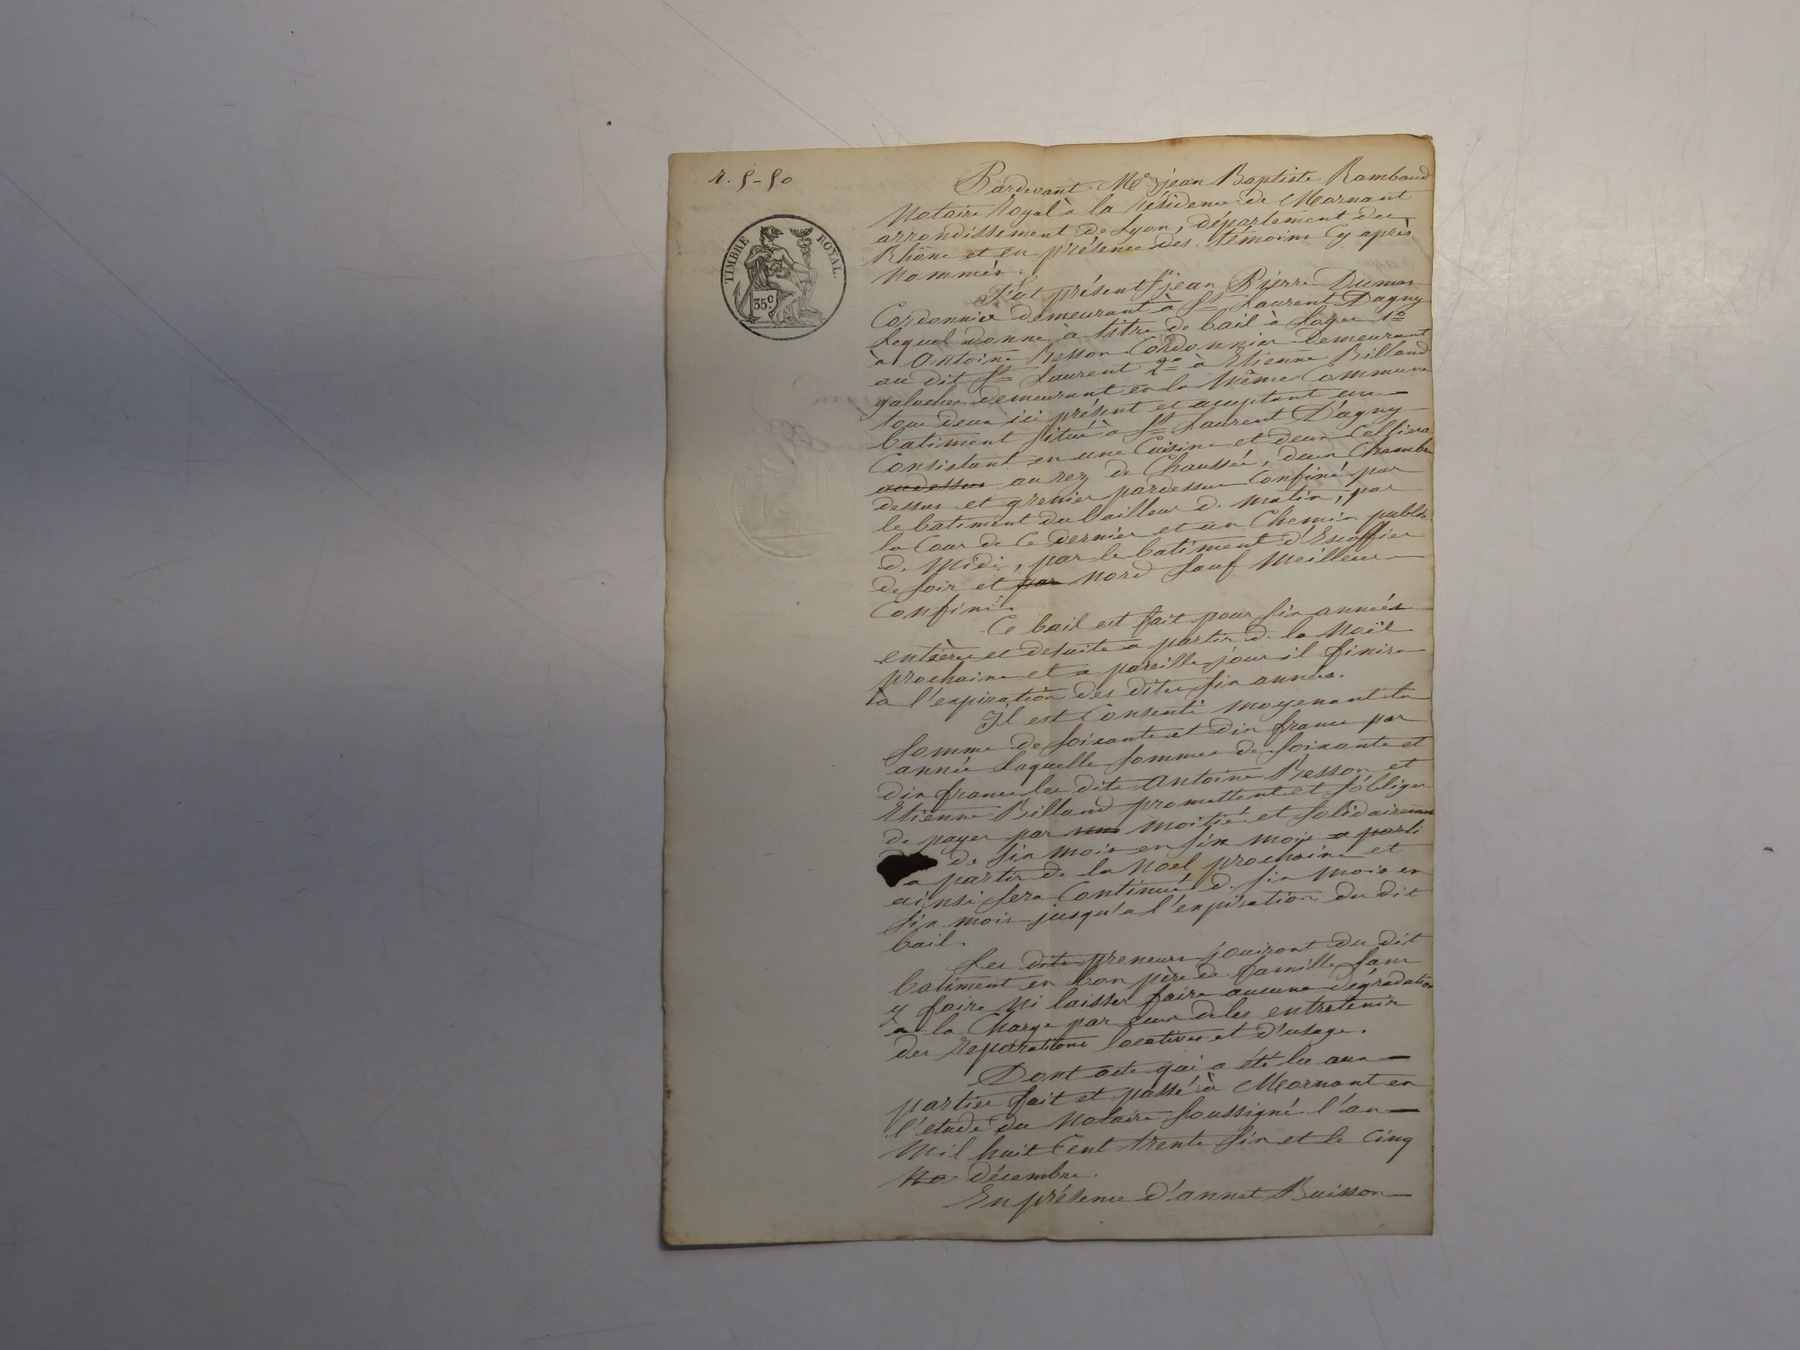 r. 5-50
TIMBRE ROYAL.
35c
Pardevant Me jean Baptiste Rambaud
Notaire Royal à la résidence de Mornant
arrondissement de Lyon, département du
Rhône et en présence des témoins Cy après
Nommés.
Fut présent Sr jean Pierre Dumas
Cordonnier demeurant à St Laurent Dagny
Lequel donne à titre de bail à Loyer 1o
à Antoine Besson Cordonnier demeurant
au dit St Laurent 2o à Etienne Billand
galocher demeurant en la même Commune
tous deux ici présent et aceptant un
batiment situé à St Laurent D'agny
Consistant en une Cuisine et deux Celliers
audessus au rez de Chaussée, deux Chambre
dessus et grenier pardessus Confiné par
le batiment du bailleur de matin, par
la Cour de Ce dernier et un Chemin public
de midi, par le batiment d'Escoffier
de soir et par nord sauf meilleur
Confins.
Ce bail est fait pour six années
entière et desuite a partir de la Noël
prochaine et a pareille jour il finira
à l'expiration des dites six années.
Il est Consenti moyenant la
somme de soixante et dix francs par
année Laquelle sommes de soixante et
dix francs les dits Antoine Besson et
Etienne Billand promettent et s'oblige
de payer par moitié et solidairement
de six mois en six mois a parti
a partir de la Noël prochaine et
ainsi sera Continué de six mois en
six mois jusqu'a l'expiration du dit
bail.
Les dits preneurs jouiront du dit
batiment en bon père de famille sans
y faire ni laisser faire aucune dégradation
à la Charge par eux de les entretenir
des réparations locatives et d'usage.
Dont acte qui a été lu aux
parties fait et passé à Mornant en
l'etude du Notaire soussigné l'an
Mil huit Cent trente six et le Cinq
décembre.
En présence d'annet Buisson